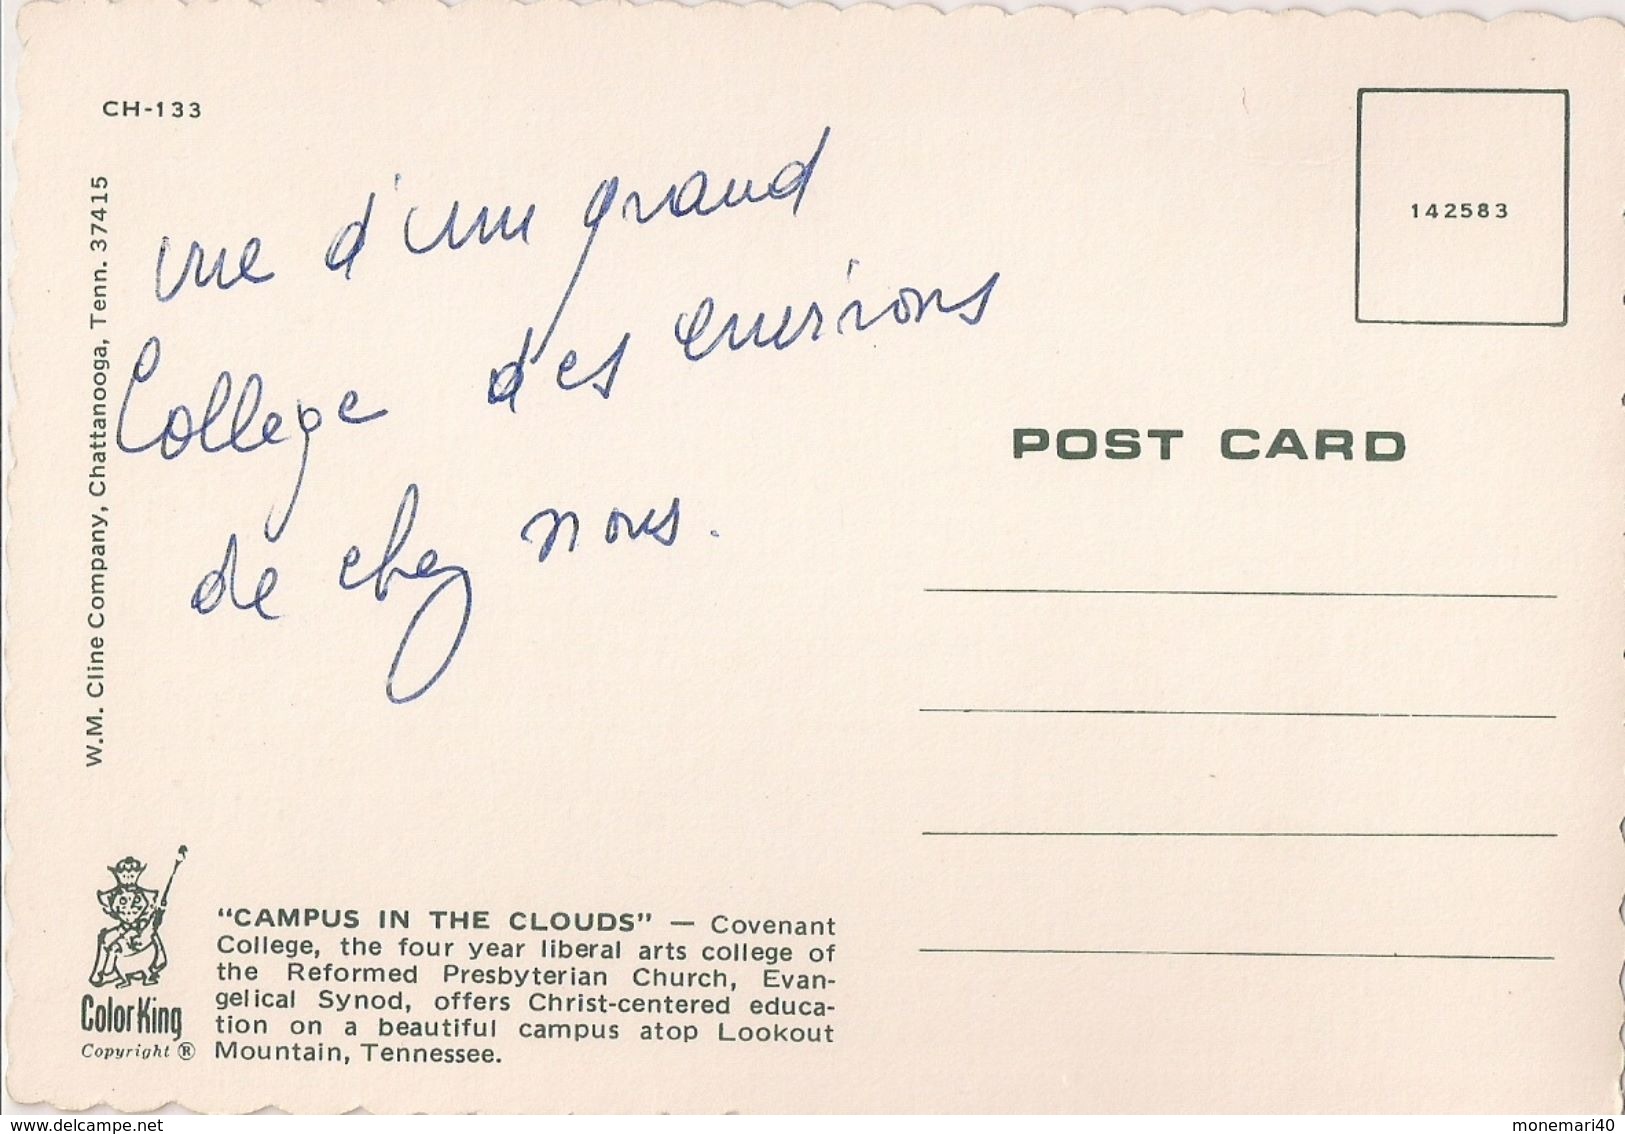 CH-133
W.M. Cline Company, Chattanooga, Tenn. 37415
vue d'un grand
College des environs
de chez nous.
142583
POST CARD
"CAMPUS IN THE CLOUDS" — Covenant
College, the four year liberal arts college of
the Reformed Presbyterian Church, Evan-
gelical Synod, offers Christ-centered educa-
tion on a beautiful campus atop Lookout
Mountain, Tennessee.
ColorKing
Copyright ®
delcampe.net
monemari40